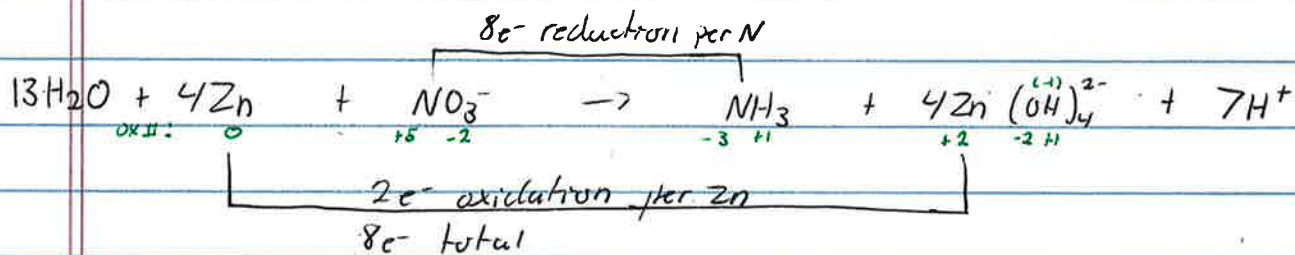 8e⁻ reduction per N
13H₂O + 4Zn + NO₃⁻ → NH₃ + 4Zn(OH)₄²⁻ + 7H⁺
(-1)
ox #: 0 +5 -2 -3 +1 +2 -2 +1
2e⁻ oxidation per Zn
8e⁻ total